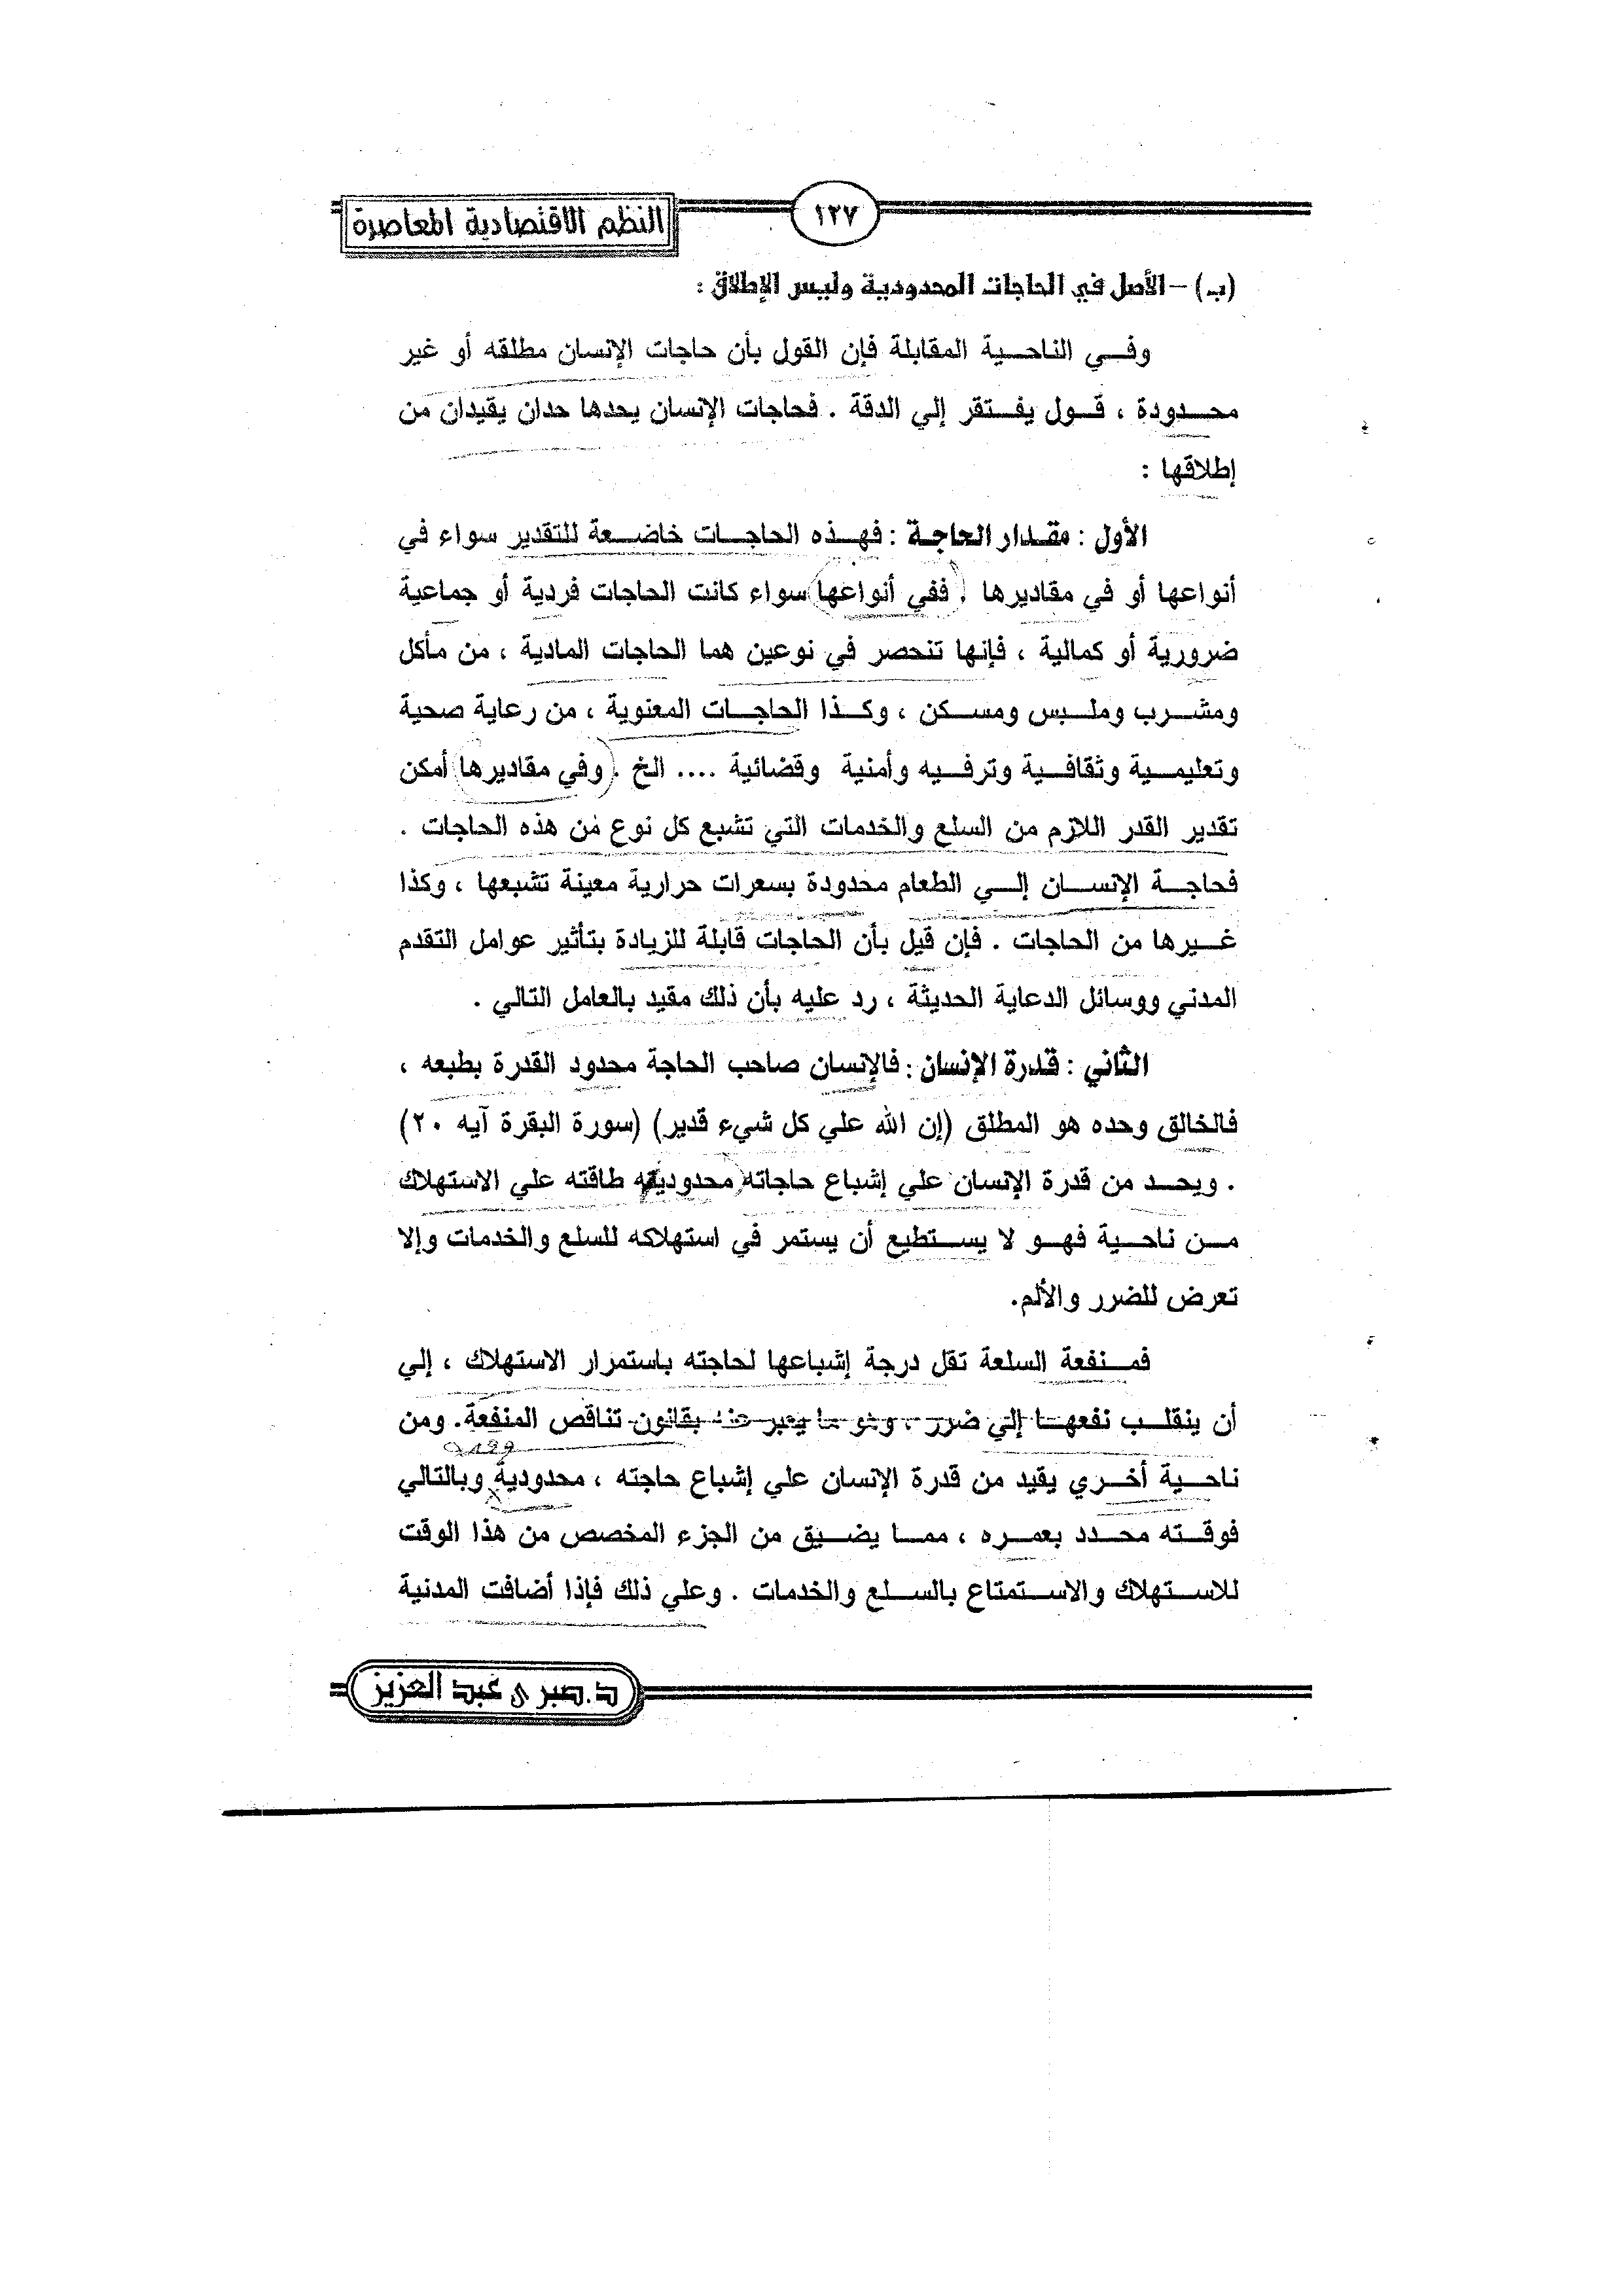 ١٢٧
النظم الاقتصادية المعاصرة
(بـ) – الأصل في الحاجات المحدودية وليس الإطلاق :
وفي الناحية المقابلة فإن القول بأن حاجات الإنسان مطلقه أو غير
محدودة ، قول يفتقر إلي الدقة . فحاجات الإنسان يحدها حدان يقيدان من
إطلاقها :
الأول : مقدار الحاجة : فهذه الحاجات خاضعة للتقدير سواء في
أنواعها أو في مقاديرها . ففي أنواعها سواء كانت الحاجات فردية أو جماعية
ضرورية أو كمالية ، فإنها تنحصر في نوعين هما الحاجات المادية ، من مأكل
ومشرب وملبس ومسكن ، وكذا الحاجات المعنوية ، من رعاية صحية
وتعليمية وثقافية وترفيه وأمنية وقضائية .... الخ . وفي مقاديرها أمكن
تقدير القدر اللازم من السلع والخدمات التي تشبع كل نوع من هذه الحاجات .
فحاجة الإنسان إلي الطعام محدودة بسعرات حرارية معينة تشبعها ، وكذا
غيرها من الحاجات . فإن قيل بأن الحاجات قابلة للزيادة بتأثير عوامل التقدم
المدني ووسائل الدعاية الحديثة ، رد عليه بأن ذلك مقيد بالعامل التالي .
الثاني : قدرة الإنسان : فالإنسان صاحب الحاجة محدود القدرة بطبعه ،
فالخالق وحده هو المطلق (إن الله علي كل شيء قدير) (سورة البقرة آيه ٢٠)
. ويحد من قدرة الإنسان علي إشباع حاجاته محدودية طاقته علي الاستهلاك
من ناحية فهو لا يستطيع أن يستمر في استهلاكه للسلع والخدمات وإلا
تعرض للضرر والألم.
فمنفعة السلعة تقل درجة إشباعها لحاجته باستمرار الاستهلاك ، إلي
أن ينقلب نفعها إلي ضرر ، وهو ما يعبر عنه بقانون تناقص المنفعة. ومن
ناحية أخري يقيد من قدرة الإنسان علي إشباع حاجته ، محدودية وبالتالي
فوقته محدد بعمره ، مما يضيق من الجزء المخصص من هذا الوقت
للاستهلاك والاستمتاع بالسلع والخدمات . وعلي ذلك فإذا أضافت المدنية
د.صبرى عبد العزيز